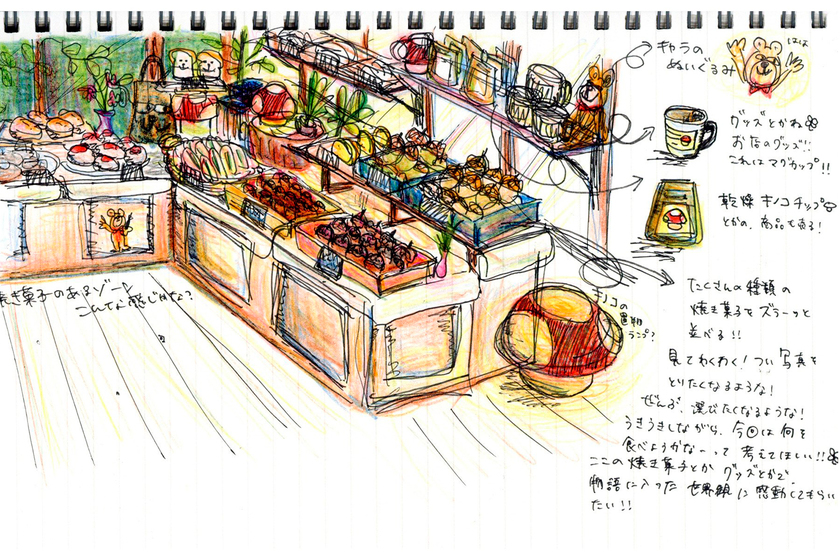 キャラの
ぬいぐるみ
はは
グッズとかね
お店のグッズ!!
これはマグカップ!!
乾燥キノコチップ
とかの、商品も有る!
たくさんの種類の
焼き菓子をズラーッと
並べる!!
キノコの
置物
ランプ?
焼き菓子のあるゾーン
こんな感じかな?
見てわくわく!つい写真を
とりたくなるような!
ぜんぶ、選びたくなるような!
うきうきしながら、今回は何を
食べようかなーって考えてほしい!!
ここの焼き菓子とかグッズとかで、
物語に入った世界観に感動してもらい
たい!!